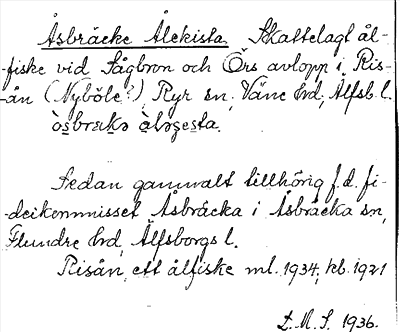 Åsbräcke Ålekista. Skattelagt ål-
fiske vid Sågbron och Örs avlopp i Ris-
ån (Nyböle?), Ryr sn, Väne hd, Älfsb. l.
òsbræko ålsgesta.
Sedan gammalt tillhörig f.d. fi-
deikommisset Åsbräcka i Åsbräcka sn,
Flundre hd, Älfsborgs l.
Risån, ett ålfiske ml. 1934, kb. 1921
L.M.S. 1936.